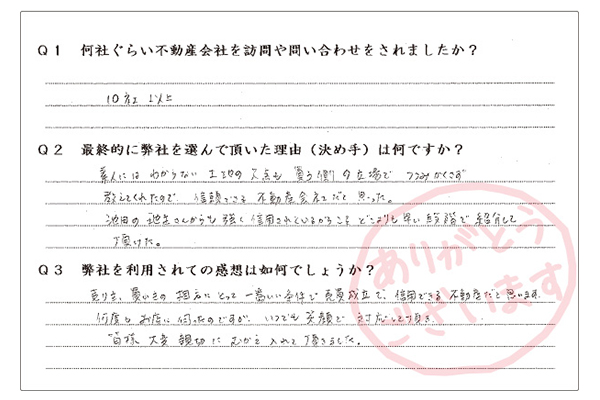 Q1 何社ぐらい不動産会社を訪問や問い合わせをされましたか?
10社以上
Q2 最終的に弊社を選んで頂いた理由(決め手)は何ですか?
素人にはわからない土地の欠点も買う側の立場でつつみかくさず
教えてくれたので、信頼できる不動産会社だと思った。
池田の地主さんからも強く信用されているからこそどこよりも早い段階で紹介して
頂けた。
Q3 弊社を利用されての感想は如何でしょうか?
売り主、買い主の相方にとって一番いい条件で売買成立で、信用できる不動産だと思います。
何度もお店に伺ったのですが、いつでも笑顔で対応して頂き、
皆様大変親切にむかえ入れて頂きました。
ありがとう
ございます